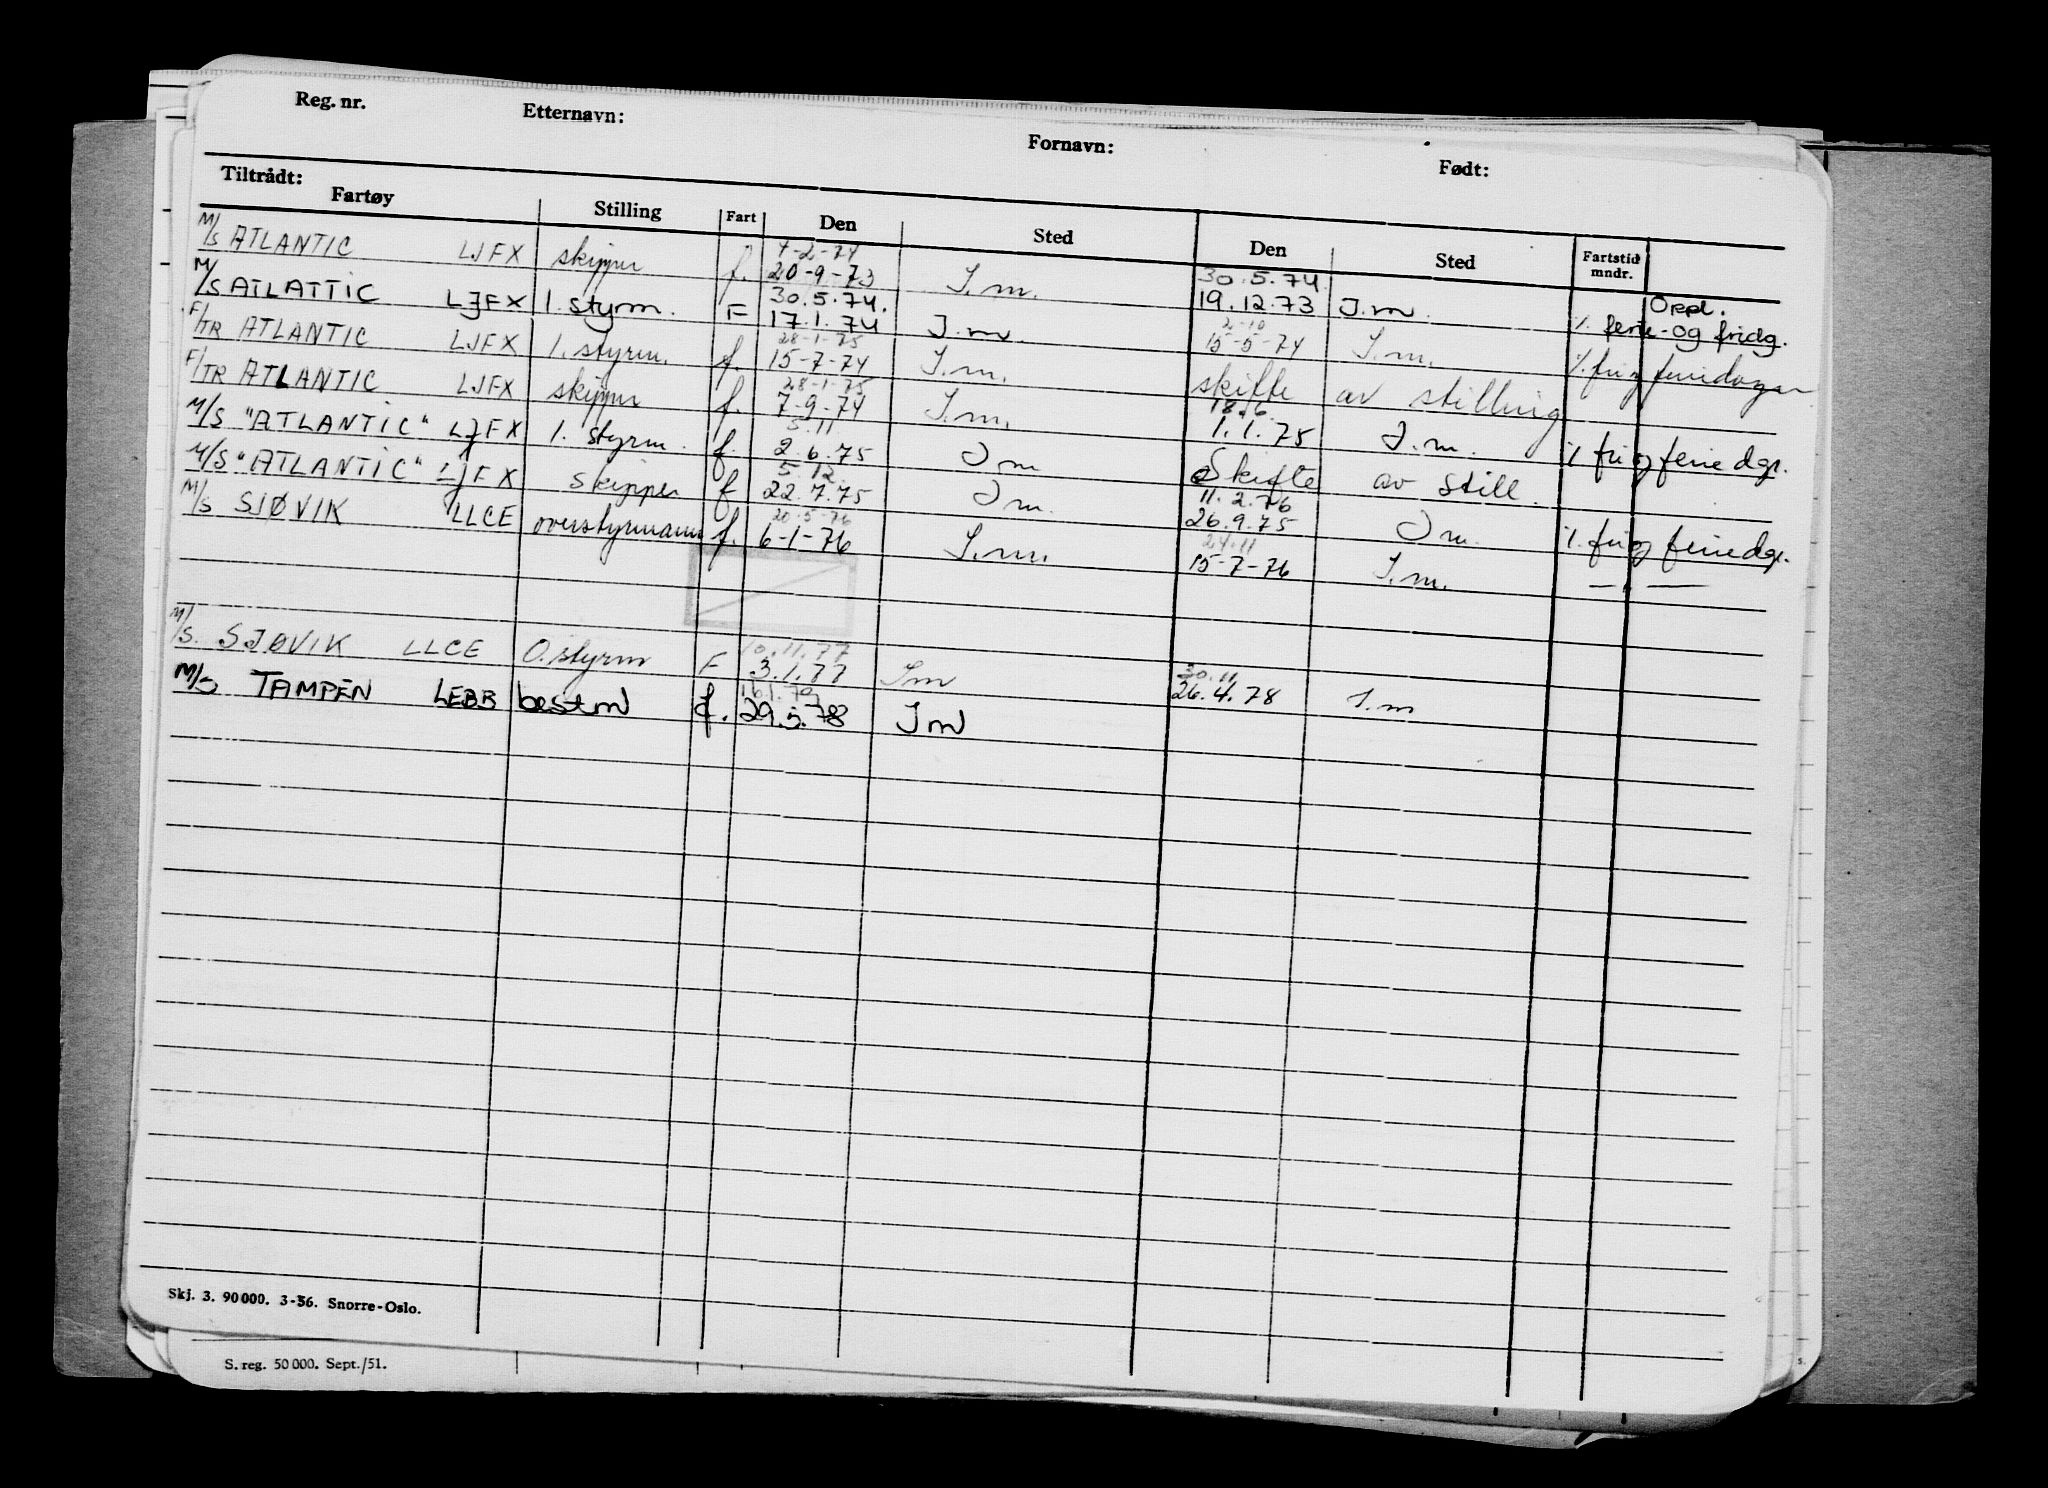 Reg. nr. Etternavn: Fornavn: Født:
Tiltrådt:
Fartøy Stilling Fart Den Sted Den Sted Fartstid mndr.
4-2-74 30.5.74
M/S ATLANTIC LJFX skipper f. 20-9-73 I.m. 19.12.73 I.m. Oppl.
30.5.74. % ferie- og fridg.
M/S ATLATTIC LJFX 1. styrm. F 17.1.74 I.m. 15-5-74 I.m. % fri og feriedager
28-1-75 2-10
F/TR ATLANTIC LJFX 1. styrm. f. 15-7-74 I.m. skifte av stilling
28-1-75 18.6.
F/TR ATLANTIC LJFX skipper f. 7-9-74 I.m. 1.1.75 I.m. % fri og ferie dgr.
5.11
M/S "ATLANTIC" LJFX 1. styrm. f. 2.6.75 I m Skifte av still.
5.12. 11.2.76
M/S "ATLANTIC" LJFX skipper f 22.7.75 I m. 26.9.75 I m. % fri og ferie dgr.
20-5-76 24.11
M/S SJØVIK LLCE overstyrmann f. 6-1-76 I.m. 15-7-76 I.m. — " —
10.11.77 30.11
M/S. SJØVIK LLCE O.styrm F 3.1.77 I m 26.4.78 I.m
16.1.79
M/S TAMPEN LEBB bestm f. 29.5.78 I m
Skj. 3. 90 000. 3-56. Snorre-Oslo.
S. reg. 50 000. Sept./51.